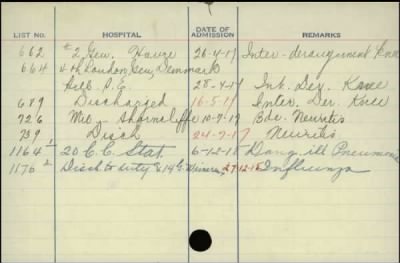 LIST NO. HOSPITAL DATE OF ADMISSION REMARKS
662 #2 Gen. Havre 26-4-17 Inter-derangement Knee
664 4th London Gen. Denmark
Hill S.E. 28-4-17 Int. Der. Knee
689 Discharged 16-5-17 Inter. Der. Knee
726 Mil Shorncliffe 10-7-17 Neuritis
739 Disch 24-7-17 Neuritis
1164 1 20 C.C. Stat. 6-12-18 Dang. ill Pneumonia
1176 2 Disch to duty 27-12-18 Influenza